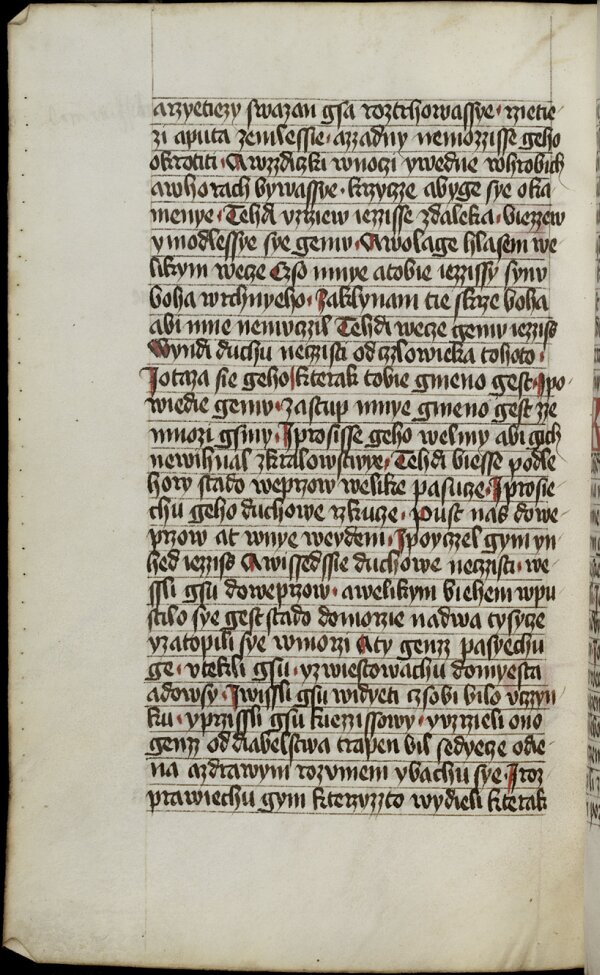 arzyetiezy swazan gsa roztrhowassye · rzietie
zi aputa zemlessie · azzadny nemozzisse geho
okrotiti · Awzzdiczki wnoczi ywedne wohrobich
awhorach bywassye · krzycze abyge sye oka
menye · Tehdi vzrziew iezzisse zdaleka · biezzew
ymodlessye sye gemv · Awolage hlasem we
likym wecze Czso mnye atobie iezzissy synv
boha wrchnyeho · Zaklynam tie skrze boha
abi mne nemvczil Tehdi wecze gemv iezziss
Wyndi duchu neczisti od czlowieka tohoto ·
Iotaza sie geho kterak tobie gmeno gest · Ipo
wiedie gemv · zastup mnye gmeno gest zze
mnozi gsmy · Iprosisse geho welmy abi gich
newihnal zkralowstwye · Tehdi biesse podle
hory stado weprzow welike pasucze · Iprosie
chu geho duchowe rzkucze · Pust nas dowe
przow at wnye weydem · Ipoyczel gym yn
hed iezziss Awissedssie duchowe neczisti · we
ssli gsu doweprzow · awelikym biehem wpu
stilo sye gest stado domorzie nadwa tysycze
yzatopili sye wmorzi Aty genz pasyechu
ge · vtekli gsu · yzwiestowachu domyesta
adowsy · Iwissli gsu widyeti czsobi bilo vczyn
ku · yprzissli gsu kiezzissowy · yvzrzieli ono
genz oddiabelstwa trapen bil sedyecze odie
na azdrawym rozvmem ybachu sye · Iroz
prawiechu gym kterzyzzto wydieli kterak